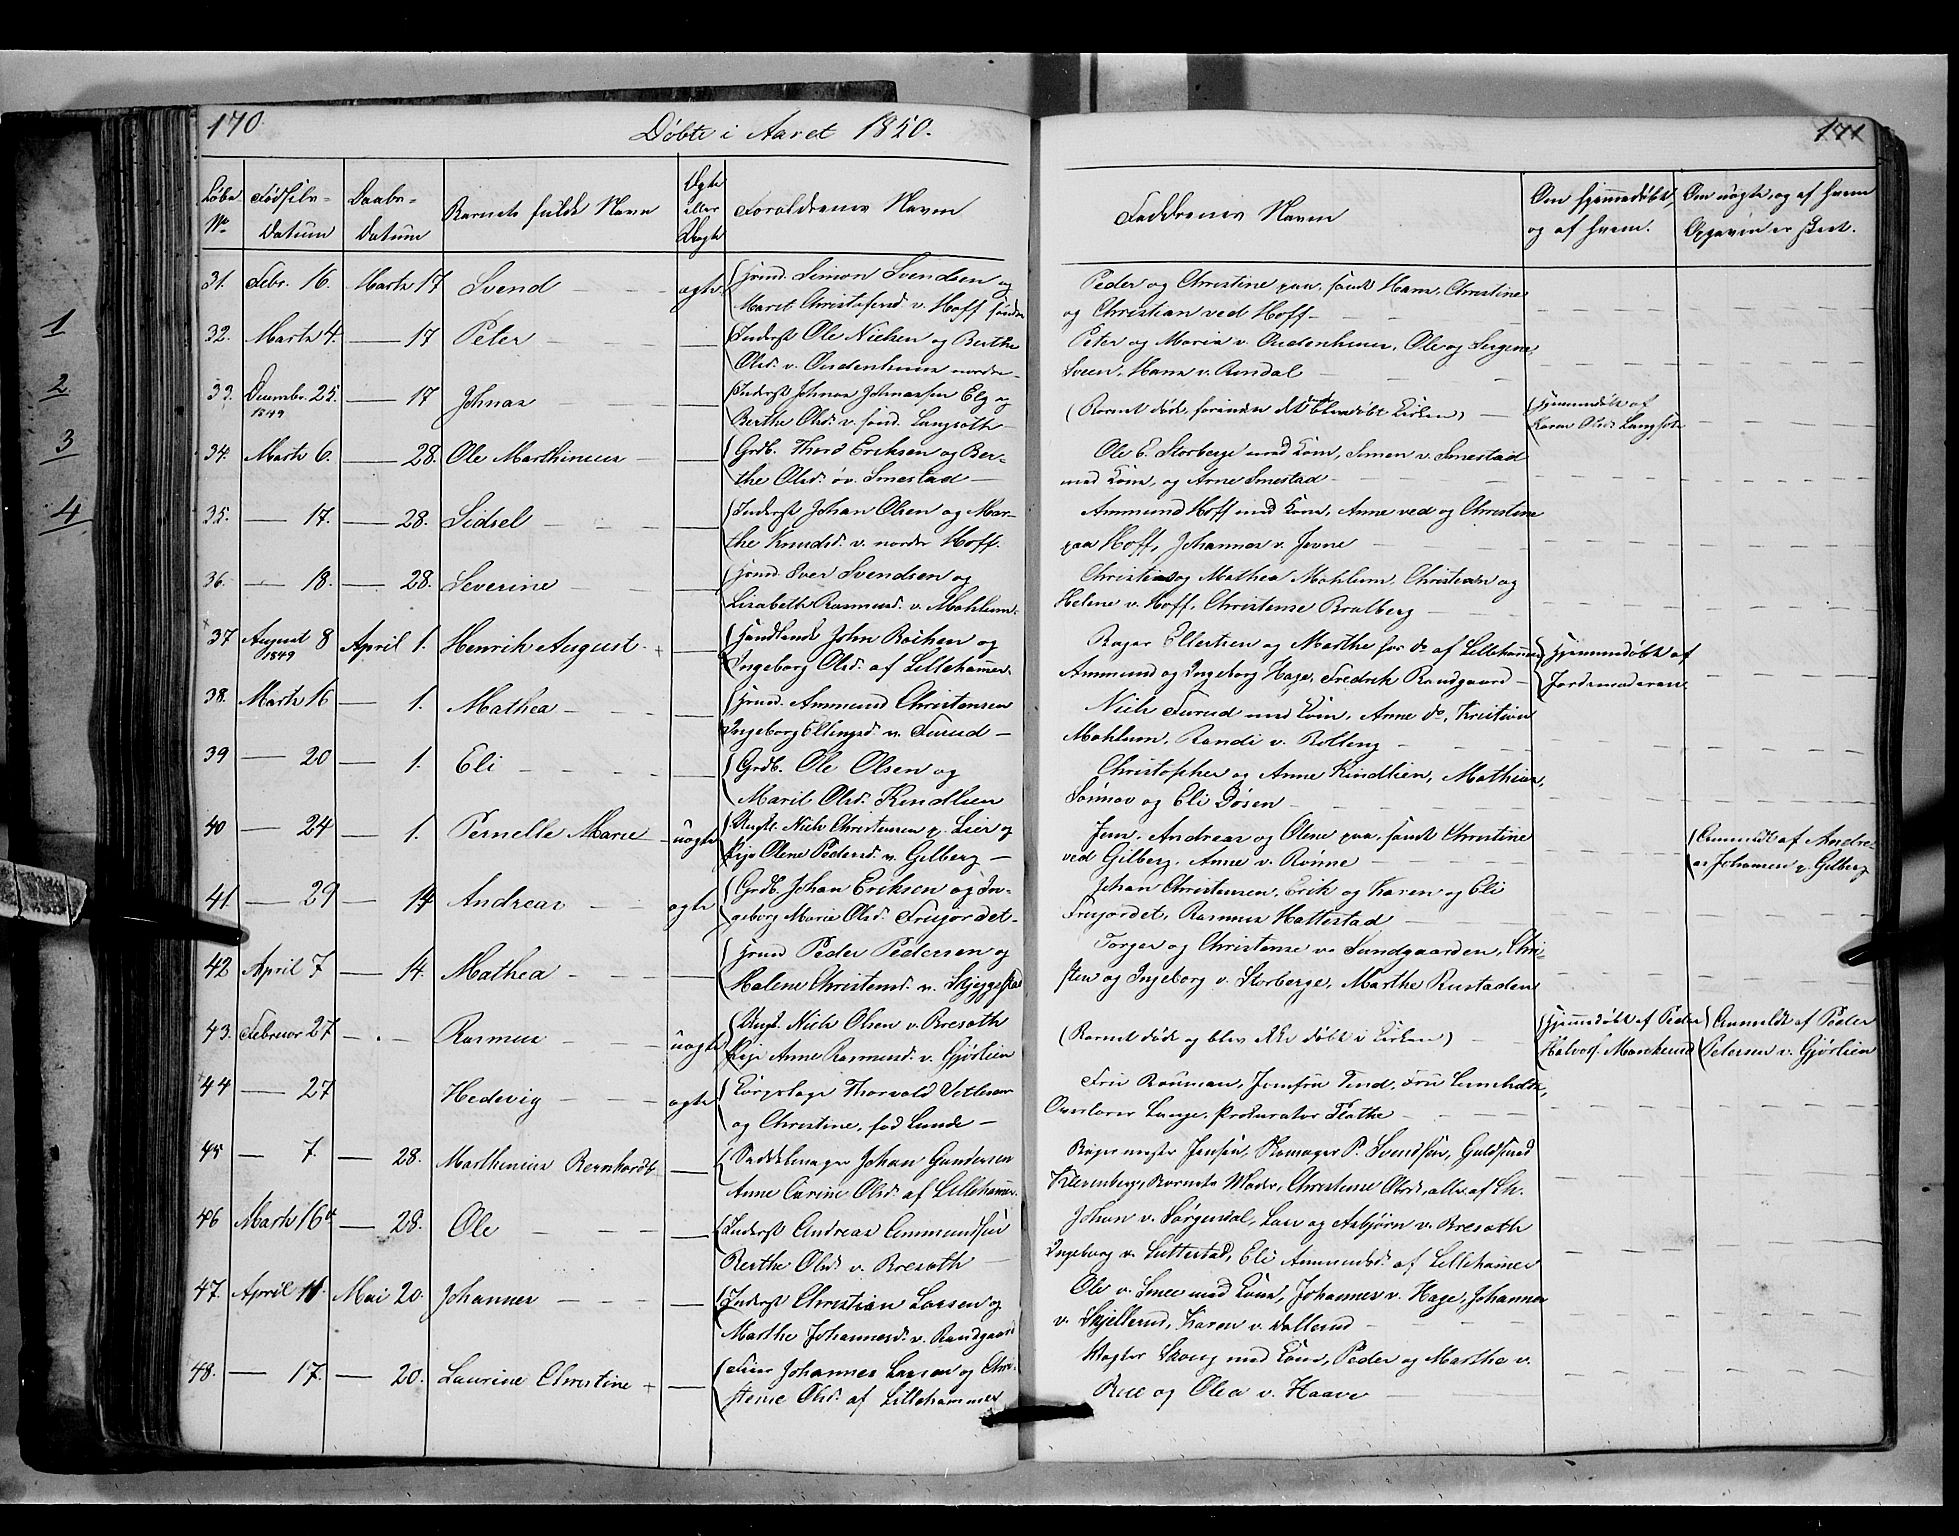 170.
Döbte i Aaret 1850.
171
Löbe No
Födsels-Datum
Daabs-Datum
Barnets fulde Navn
Ægte eller Uægte
Forældrenes Navn
Faddrenes Navn
Om hjemmedöbt, og af hvem.
Om uægte, og af hvem Opgaven er skeet.
31. Febr. 16. Marts 17 Svend ægte Huusm. Simon Svendsen og
Marit Christofersd. v. Hoff söndre
Peder og Christine paa, samt Hans, Christine
og Christian ved Hoff
32. Marts 4. 17 Peter Inderst Ole Nielsen og Berthe
Olsd. v. nordre
Peter og Maria v. Ole og
Sveen, Hans v.
33. Decembr. 25. 1849 17 Johnas Inderst Johnas Johnassen Elg og
Berthe Olsd. v. sönd. Langseth
(Barnet döde, forinden det blev döbt i Kirken)
Hjemmedöbt af
Karen Olsd. Langset
34. Marts 6. 28. Ole Marthinius Grdb. Thord Eriksen og Ber-
the Olsd. öv. Smestad
Ole E. Storberge med Kone, Simen v. Smestad
med Kone, og Arne Smestad
35. 17. 28. Sidsel Inderst Johan Olsen og Mar-
the Knudsd. v. nordre Hoff.
Ammund Hoff med Kone, Anne ved og Christine
paa Hoff, Johannes v. Jevne
36. 18. 28. Severine Huusm. Iver Svendsen og
Lisabeth Rasmusd. v. Mæhlum.
Christian og Mathea Mæhlum, Christian og
Helene v. Hoff, Christense Bralberg
37 August 8 1849 April 1. Henrik August + Handlende John Bochen og
Ingeborg Olsd. af Lillehammer
Bager Ellertsen og Marthe do af Lillehammer
Ammund og Ingeborg Hage, Fredrik Randgaard
Hjemmedöbt af
Jordemoderen
38. Marts 16 1. Mathea Huusm. Ammund Christensen
Ingeborg Ellingsd. v. Furud
Niels Furud med Kone, Anne do, Kristian
Mæhlum, Randi v. Rolleng
39 20 1. Eli Grdb. Ole Olsen og
Marit Olsd. Kindlien
Christopher og Anne Kindlien, Mathias
og Eli Dösen
40 24 1. Pernelle Marie uægte Ungk. Niels Christensen p. Lier og
Pige Olene Pedersd. v. Gilberg
Jens, Andreas og Olene paa, samt Christine
ved Gilberg, Anne v. Rönne
Anmeldt af Andre-
as Johansen p. Gilberg
41. 29 14 Andreas ægte Grdb. Johan Eriksen og In-
geborg Marie Olsd. Frujordet
Johan Christensen, Erik og Karen og Eli
Frujordet, Rasmus Hattestad
42 April 7 14. Mathea Huusm. Peder Pedersen og
Malene Christensd. v. Skjeggestad
Torger og Christense v. Sundgaarden, Chri-
sten og Ingeborg v. Storberge, Marthe Rustaden
43. Februar 27 Rasmus uægte Ungk. Niels Olsen v. Bresæth
Pige Anne Rasmusd. v. Gjörlien
(Barnet döde og blev ikke döbt i Kirken)
Hjemmedöbt af Peder
Halvors.
Anmeldt af Peder
Petersen v. Gjörlien
44 27 Hedevig ægte Corpslæge Thorvald
og Christine, föd Lunde
Fru Jomfru Fru
Overlærer Lange, Prokurator Flathe
45 7. 28. Marthinius Bernhardt Sadelmager Johan Gundersen
Anne Carine Olsd. af Lillehammer
Bagermester Jensen, Skomager P. Svendsen, Guldsmed
Barnets Moder, Christense Olsd., alle af Lh.
46 Marts 16de 28. Ole Inderst Andreas Ammundsen
Berthe Olsd. v. Bresæth
Johan v. Sörgendal, Lars og Asbjörn v. Bresæth
Ingeborg v. Suttestad, Eli Ammundsd. af Lillehammer
47. April 11. Mai 20. Johannes Inderst Christian Larsen og
Marthe Johannesd. v. Randgaard
Ole v. Smee med Kone, Johannes v. Hage, Johannes
v. Skjellerud, Karen v. Dallerud
48. 17. 20. Laurine Christine + Johannes Larsen og Chri-
stense Olsd. af Lillehammer
Vægter Skoug med Kone, Peder og Marthe v.
Rue og Olea v. Haave
1
2
3
4